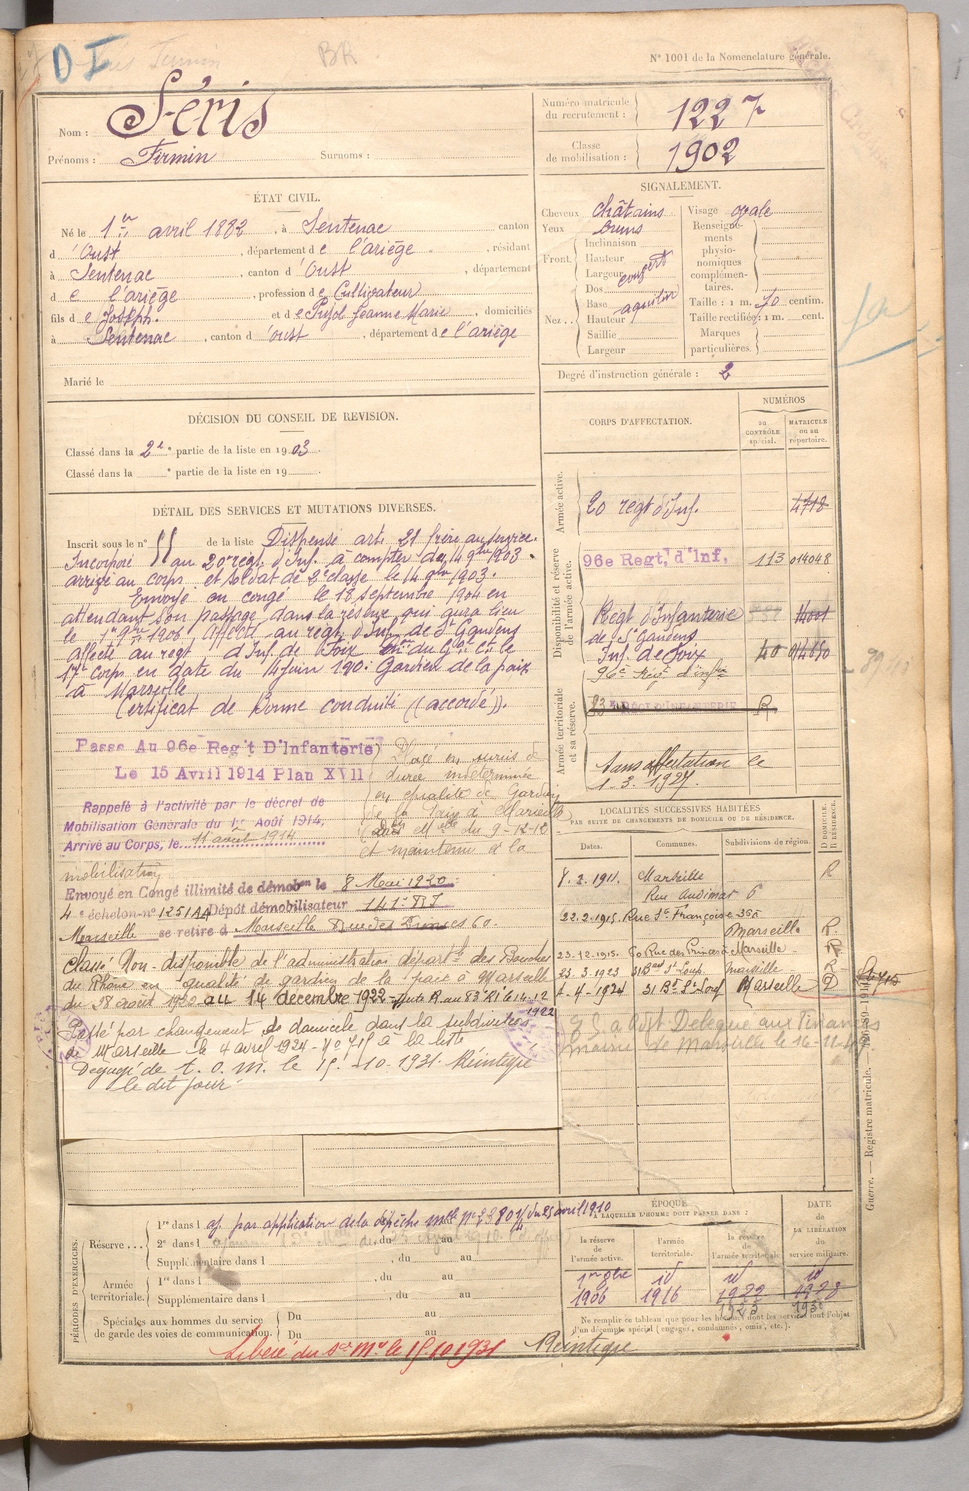 D I
BR
N° 1001 de la Nomenclature générale.
Nom : Séris
Prénoms : Firmin Surnoms :
Numéro matricule du recrutement : 1227
Classe de mobilisation : 1902
ÉTAT CIVIL.
Né le 1er avril 1882, à Sentenac canton
d'Oust, département de l'ariège, résidant
à Sentenac, canton d'Oust, département
de l'ariège, profession de Cultivateur
fils de Joseph et de Pujol Jeanne Marie, domiciliés
à Sentenac, canton d'oust, département de l'ariège
Marié le
SIGNALEMENT.
Cheveux châtains
Yeux bruns
Front. Inclinaison
Hauteur
Largeur couvert
Nez.. Dos
Base aquilin
Hauteur
Saillie
Largeur
Visage ovale
Renseignements physionomiques complémentaires.
Taille : 1 m. 70 centim.
Taille rectifiée : 1 m. cent.
Marques particulières.
Degré d'instruction générale : 2
DÉCISION DU CONSEIL DE REVISION.
Classé dans la 2e partie de la liste en 1903.
Classé dans la e partie de la liste en 19 .
DÉTAIL DES SERVICES ET MUTATIONS DIVERSES.
Inscrit sous le n° 55 de la liste Dispensé art. 21 frère au service.
Incorporé au 20e régt d'Inf. à compter du 14 9bre 1903.
arrivé au corps et soldat de 2e classe le 14 9bre 1903.
Envoyé en congé le 18 septembre 1904 en
attendant son passage dans la réserve qui aura lieu
le 1er 9bre 1906 Affecté au régt d'Inf. de St Gaudens
Affecté au régt d'Inf. de Foix
17e corps en date du 14 juin 190. Gardien de la paix
à Marseille
Certificat de Bonne conduite (accordé).
Passé Au 96e Reg't D'Infanterie
Le 15 Avril 1914 Plan XVII
Placé en sursis de
durée indéterminée
en qualité de Gardien
de la Paix à Marseille
du 9-12-12
et maintenu à la
mobilisation
Rappelé à l'activité par le décret de
Mobilisation Générale du 1er Août 1914,
Arrivé au Corps, le 11 août 1914
Envoyé en Congé illimité de démobon le 8 Mai 1920
4e échelon n° 1251AA Dépôt démobilisateur 141e RI
Marseille se retire à Marseille Rue des Princes 60.
Classé Non-disponible de l'administration départle des Bouches
du Rhône en qualité de gardien de la paix à Marseille
du 28 août 1920 au 14 decembre 1922
Passé par changement de domicile dans la subdivision
de Marseille le 4 avril 1924 - n° 715 à la liste
Dégagé de t. o. m. le 15-10-1931. Réintégré
le dit jour
CORPS D'AFFECTATION.
NUMÉROS
au CONTRÔLE spécial.
MATRICULE ou au répertoire.
Armée active.
20 régt d'Inf. 4718
Disponibilité et réserve de l'armée active.
96e Regt, d'Inf, 113 014048
Régt d'Infanterie
de St Gaudens
Inf. de Foix 40
Armée territoriale et sa réserve.
96e Rég d'Infie
Sans affectation le
1.3.1927.
LOCALITÉS SUCCESSIVES HABITÉES
PAR SUITE DE CHANGEMENTS DE DOMICILE OU DE RÉSIDENCE.
Dates. Communes. Subdivisions de région. D. DOMICILE. R. RÉSIDENCE.
8.2.1911. Marseille R
22.2.1915. Rue St Françoise 35A Marseille R.
23.12.1915. 60 Rue des Princes à Marseille R
23.3.1923 31 Bard St Loup. Marseille R
4-4-1924 31 Bd St Loup Marseille D
Délégué aux Finances
mairie de Marseille le 16-11-
Guerre. — Registre matricule.
PÉRIODES D'EXERCICES.
Réserve... 1re dans l aj. par application de la dépêche mlle du 25 avril 1910
2e dans l , du au
Supplémentaire dans l , du au
Armée territoriale. 1re dans l , du au
Supplémentaire dans l , du au
Spéciales aux hommes du service de garde des voies de communication. Du au
Du au
ÉPOQUE
À LAQUELLE L'HOMME DOIT PASSER DANS :
la réserve de l'armée active. l'armée territoriale. la réserve de l'armée territoriale.
DATE de LA LIBÉRATION du service militaire.
1er 9bre 1906 id 1916 id 1922 id 1928
1923 1931
Ne remplir ce tableau que pour les hommes dont les services font l'objet
d'un décompte spécial (engagés, condamnés, omis, etc.).
Libéré du sce Mre le 15.10.1931 Réintégré